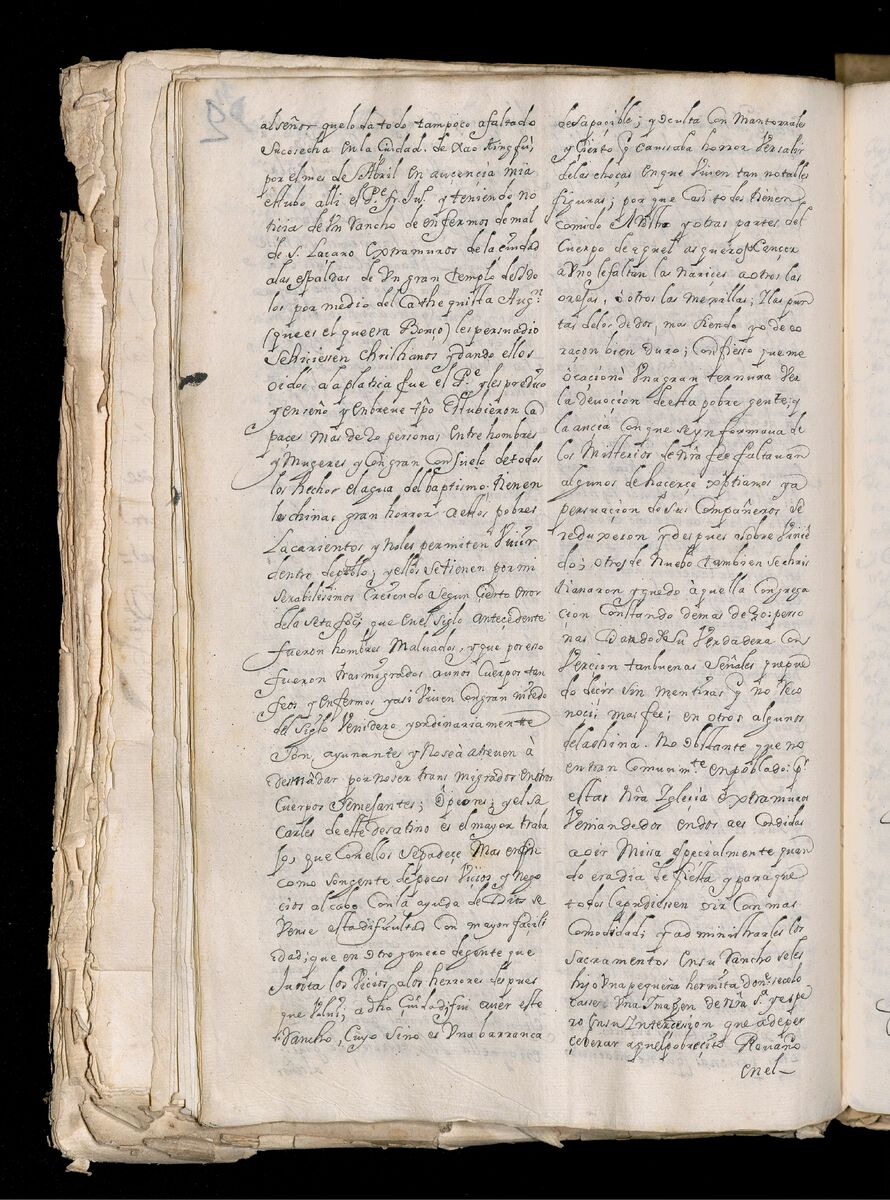 al señor que lo da todo tampoco a faltado
su cosecha en la Ciudad. de Xao King fũ;
por el mes de Abril en aucencia mia
estubo alli el P.e fr. Ju.o y teniendo no
ticia de Un Rancho de enfermos de mal
de S. Lacaro extramuros de la ciudad
a las espaldas de Un gran templo de Ido
los por medio del Cathequista Aug.n
(que es el que era Bonso) les persuadio
se hiciesen christianos y dando ellos
oidos a la platica fue el P.e y les predico
y enseño y en breve tpo estubieron Ca
paces mas de 20 personas entre hombres
y Mugeres y con gran Consuelo de todos
los hechos el agua del baptismo. tienen
los chinas gran horror a estos pobres
Lacarientos y no les permiten Vivir
dentro de poblo; y ellos se tienen por mi
serabilissimos Creiendo segun cierto error
de la seta que en el siglo antecedente
fueron hombres Malvados, y que por esso
fueron trasmigrados a unos Cuerpos tan
feos y enfermos y asi Viven con gran miedo
del siglo Venidero y ordinariamente
son ayunantes y no se atreven à
desmãdar por no ser transmigrados en otros
Cuerpos semejantes; ò peores; y el sa
carles de este desatino es el mayor traba
jo, que con ellos se padece Mas en fin
como son gente de pocos Vicios y nego
cios al cabo con la ayuda de Dios se
Vense esta dificultad con mayor facili
dad; que en otro genero de gente que
Junta los Vicios, a los herrores despues
que Volvi, a dha Ciudad, fui a ver este
Rancho, Cuyo sino es Una barranca
desapacible; y oculta con Mantorrales
y Cierto q causaba horror Ver salir
de las choças en que Viven tan notables
figuras; por que casi todos tienen
comido el Rostro y otras partes del
Cuerpo de aquel asqueroso Cançer
a Uno le faltan la narices a otros las
orejas, ò otros las mexillas; y las pun
tas de los dedos, mas siendo yo de co
raçon bien duro; Confiesso que me
ocacionò Una gran ternura Ver
la devocion de esta pobre gente; y
la ancia con que se ynformava de
los Misterios de nra fee faltavan
algunos de hacerçe xptianos y a
persuacion de sus Compañeros se
reduxeron y despues a sobre Vini
do; otros de nuebo tambien se chris
tianaron y quedo à quella Congrega
cion constando de mas de 20: perso
nas Dando de su Verdadera con
Vercion tan buenas señales que pue
do decir sin mentiras q no reco
noci; mas fee; en otros algunos
de la china. No obstante que no
entran comunm.te en poblado: p.r
estar nra Iglesia extramuros
Venian de dos en dos a escondidas
a oir Missa especialmente quan
do era dia de fiesta y para que
todos la pudiesen oir con mas
Comodidad; y administrarles los
Sacramentos en su Rancho se les
hiço Una pequeña hermita donde se colo
case Una Imagen de nra S.a y espe
ro en su Intercesion que a de per
çeberar aquel pobrecito Revaño
en el